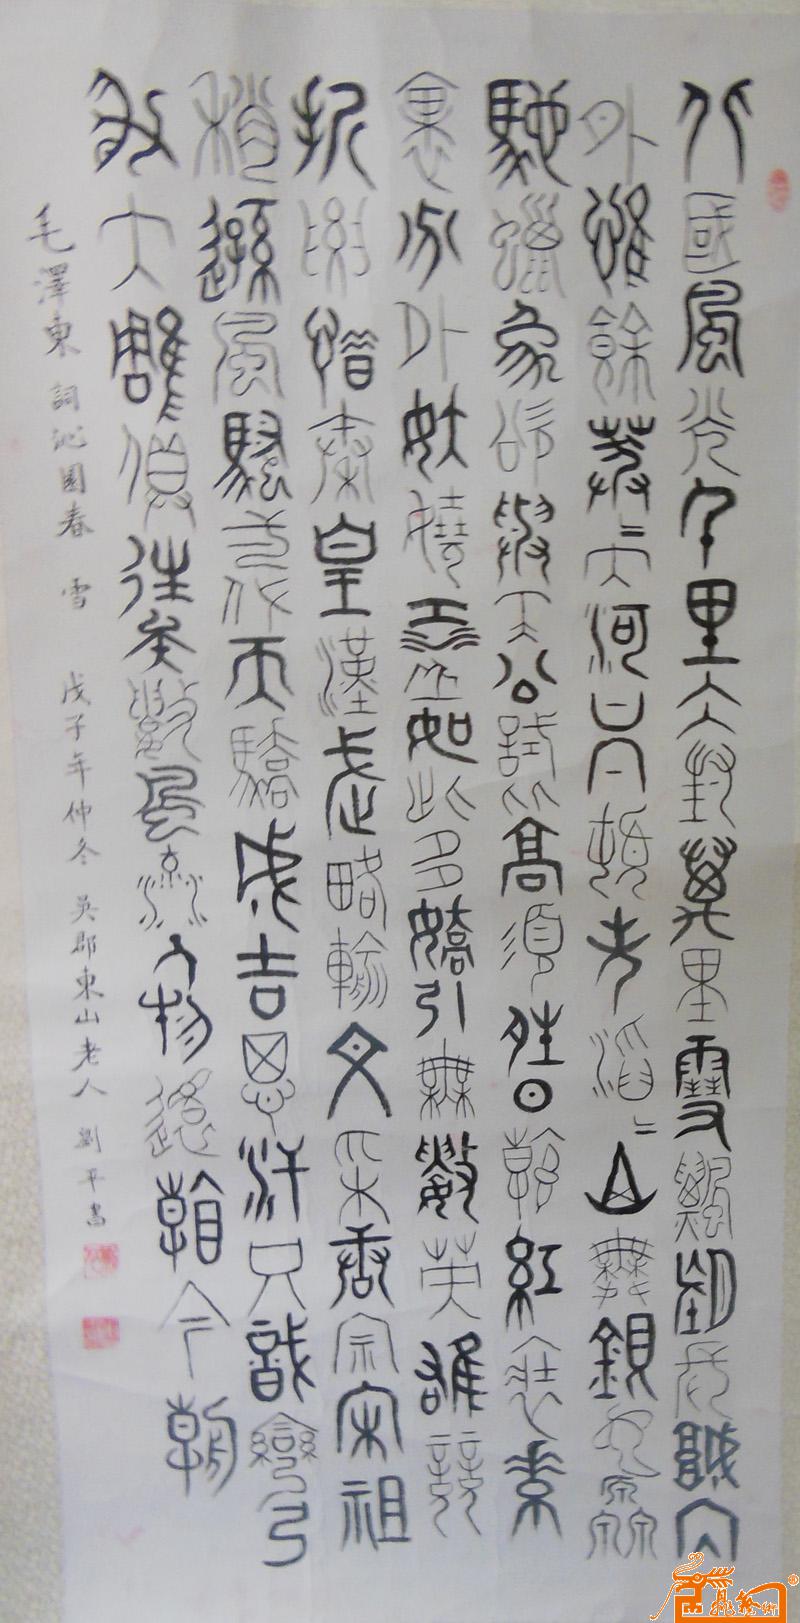 北國風光千里冰封萬里雪飄望長城內
外惟餘莽〻大河上下頓失滔〻山舞銀蛇原
馳蠟象欲與天公試比高須晴日看紅裝素
裹分外妖嬈江山如此多嬌引無數英雄競
折腰惜秦皇漢武略輸文采唐宗宋祖
稍遜風騷一代天驕成吉思汗只識彎弓
射大雕俱往矣數風流人物還看今朝
毛澤東 詞沁園春 雪 戊子年仲冬 吳郡東山老人 劉平